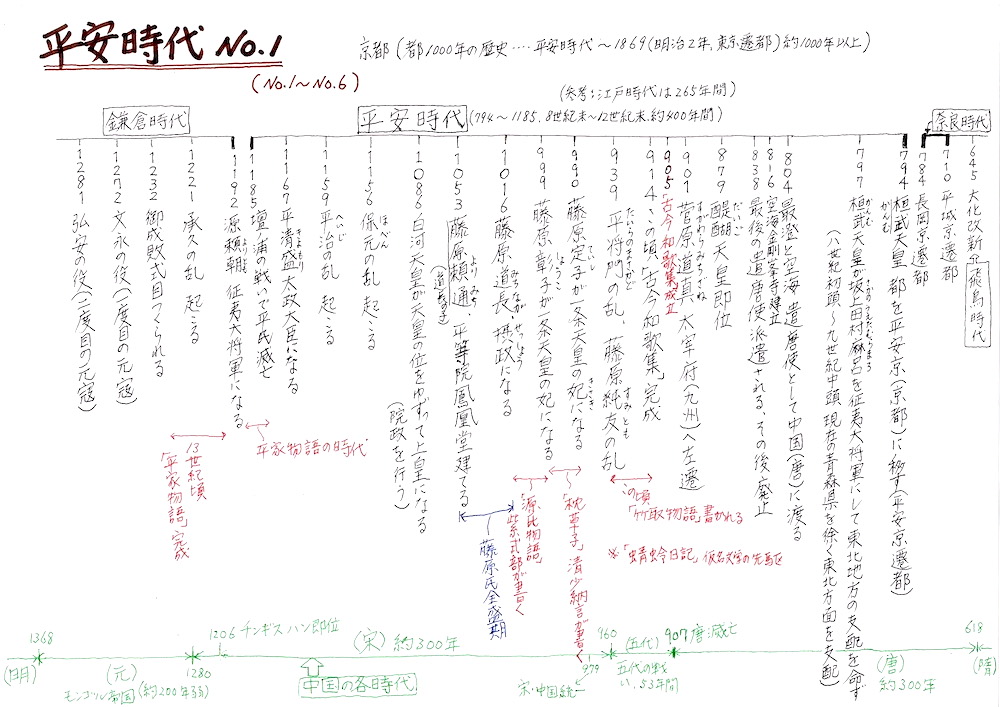 平安時代 No.1
(No.1〜No.6)
京都(都1000年の歴史‥‥平安時代〜1869(明治2年,東京遷都)約1000年以上)
(参考:江戸時代は265年間)
奈良時代
平安時代(794〜1185,8世紀末〜12世紀末,約400年間)
鎌倉時代
645 大化改新
飛鳥時代
710 平城京遷都
784 長岡京遷都
794 桓武天皇、都を平安京(京都)に移す(平安京遷都)
かんむ
797 桓武天皇が坂上田村麻呂を征夷大将軍にして東北地方の支配を命ず
(八世紀初頭〜九世紀中頭 現在の青森県を徐く東北方面を支配)
804 最澄と空海 遣唐使として中国(唐)に渡る
816 空海金剛峯寺建立
838 最後の遣唐使派遣される、その後廃止
879 醍醐天皇即位
だいご
901 菅原道真、大宰府(九州)へ左遷
すがわらみちざね
905 「古今和歌集」成立
914 この頃「古今和歌集」完成
939 平将門の乱、藤原純友の乱
たいらのまさかど
すみとも
990 藤原定子が一条天皇の妃になる
ていし
きさき
999 藤原彰子が一条天皇の妃になる
しょうこ
1016 藤原道長、摂政になる
みちなが
せっしょう
1053 藤原頼通、平等院鳳凰堂建てる
よりみち
(道長の子)
1086 白河天皇が天皇の位をゆずって上皇になる
(院政を行う)
1156 保元の乱 起こる
ほげん
1159 平治の乱 起こる
へいじ
1167 平清盛、太政大臣になる
きよもり
1185 壇浦の戦いで平氏滅亡
1192 源頼朝、征夷大将軍になる
よりとも
1221 承久の乱 起こる
1232 御成敗式目つくられる
1272 文永の役(一度目の元寇)
1281 弘安の役(二度目の元寇)
この頃
「竹取物語」書かれる
※「蜻蛉今日記」仮名文学の先駆け
「枕草子」清少納言が書く
「源氏物語」
紫式部が書く
藤原氏全盛期
平家物語の時代
13世紀頃
「平家物語」完成
618
(隋)
(唐)
約300年
907 唐滅亡
(五代)
五代の戦
い,53年間
960
979
宋・中国統一
(宋)約300年
中国の各時代
1206 チンギスハン即位
1280
(元)
モンゴル帝国(約200年弱)
1368
(明)